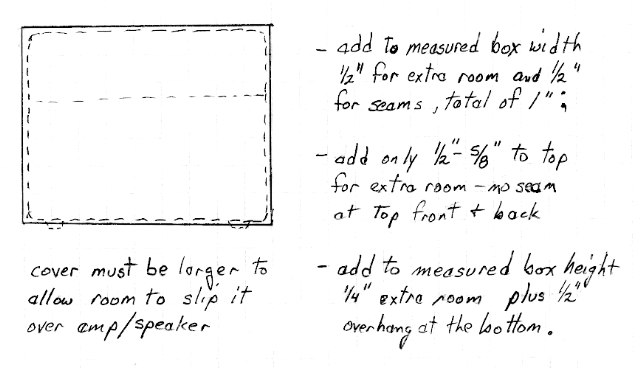 - add to measured box width
1/2" for extra room and 1/2"
for seams, total of 1";
- add only 1/2"- 5/8" to top
for extra room - no seam
at Top front + back
cover must be larger to
allow room to slip it
over amp/speaker
- add to measured box height
1/4" extra room plus 1/2"
overhang at the bottom.